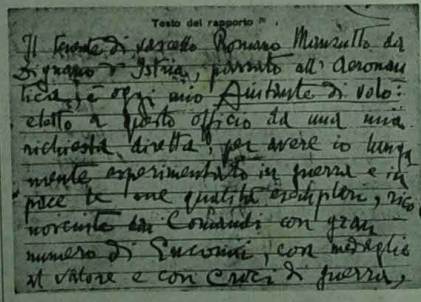 Testo del rapporto
Il tenente di vascello Romano Manzutto da
Dignano d'Istria, passato all'Aeronau
tica, è oggi mio Aiutante di volo:
eletto a questo officio da una mia
richiesta diretta, per avere io lunga
mente esperimentato in guerra e in
pace le sue qualità esemplari, rico
nosciute dai Comandi con gran
numero di Encomii, con medaglie
al valore e con Croci di guerra,